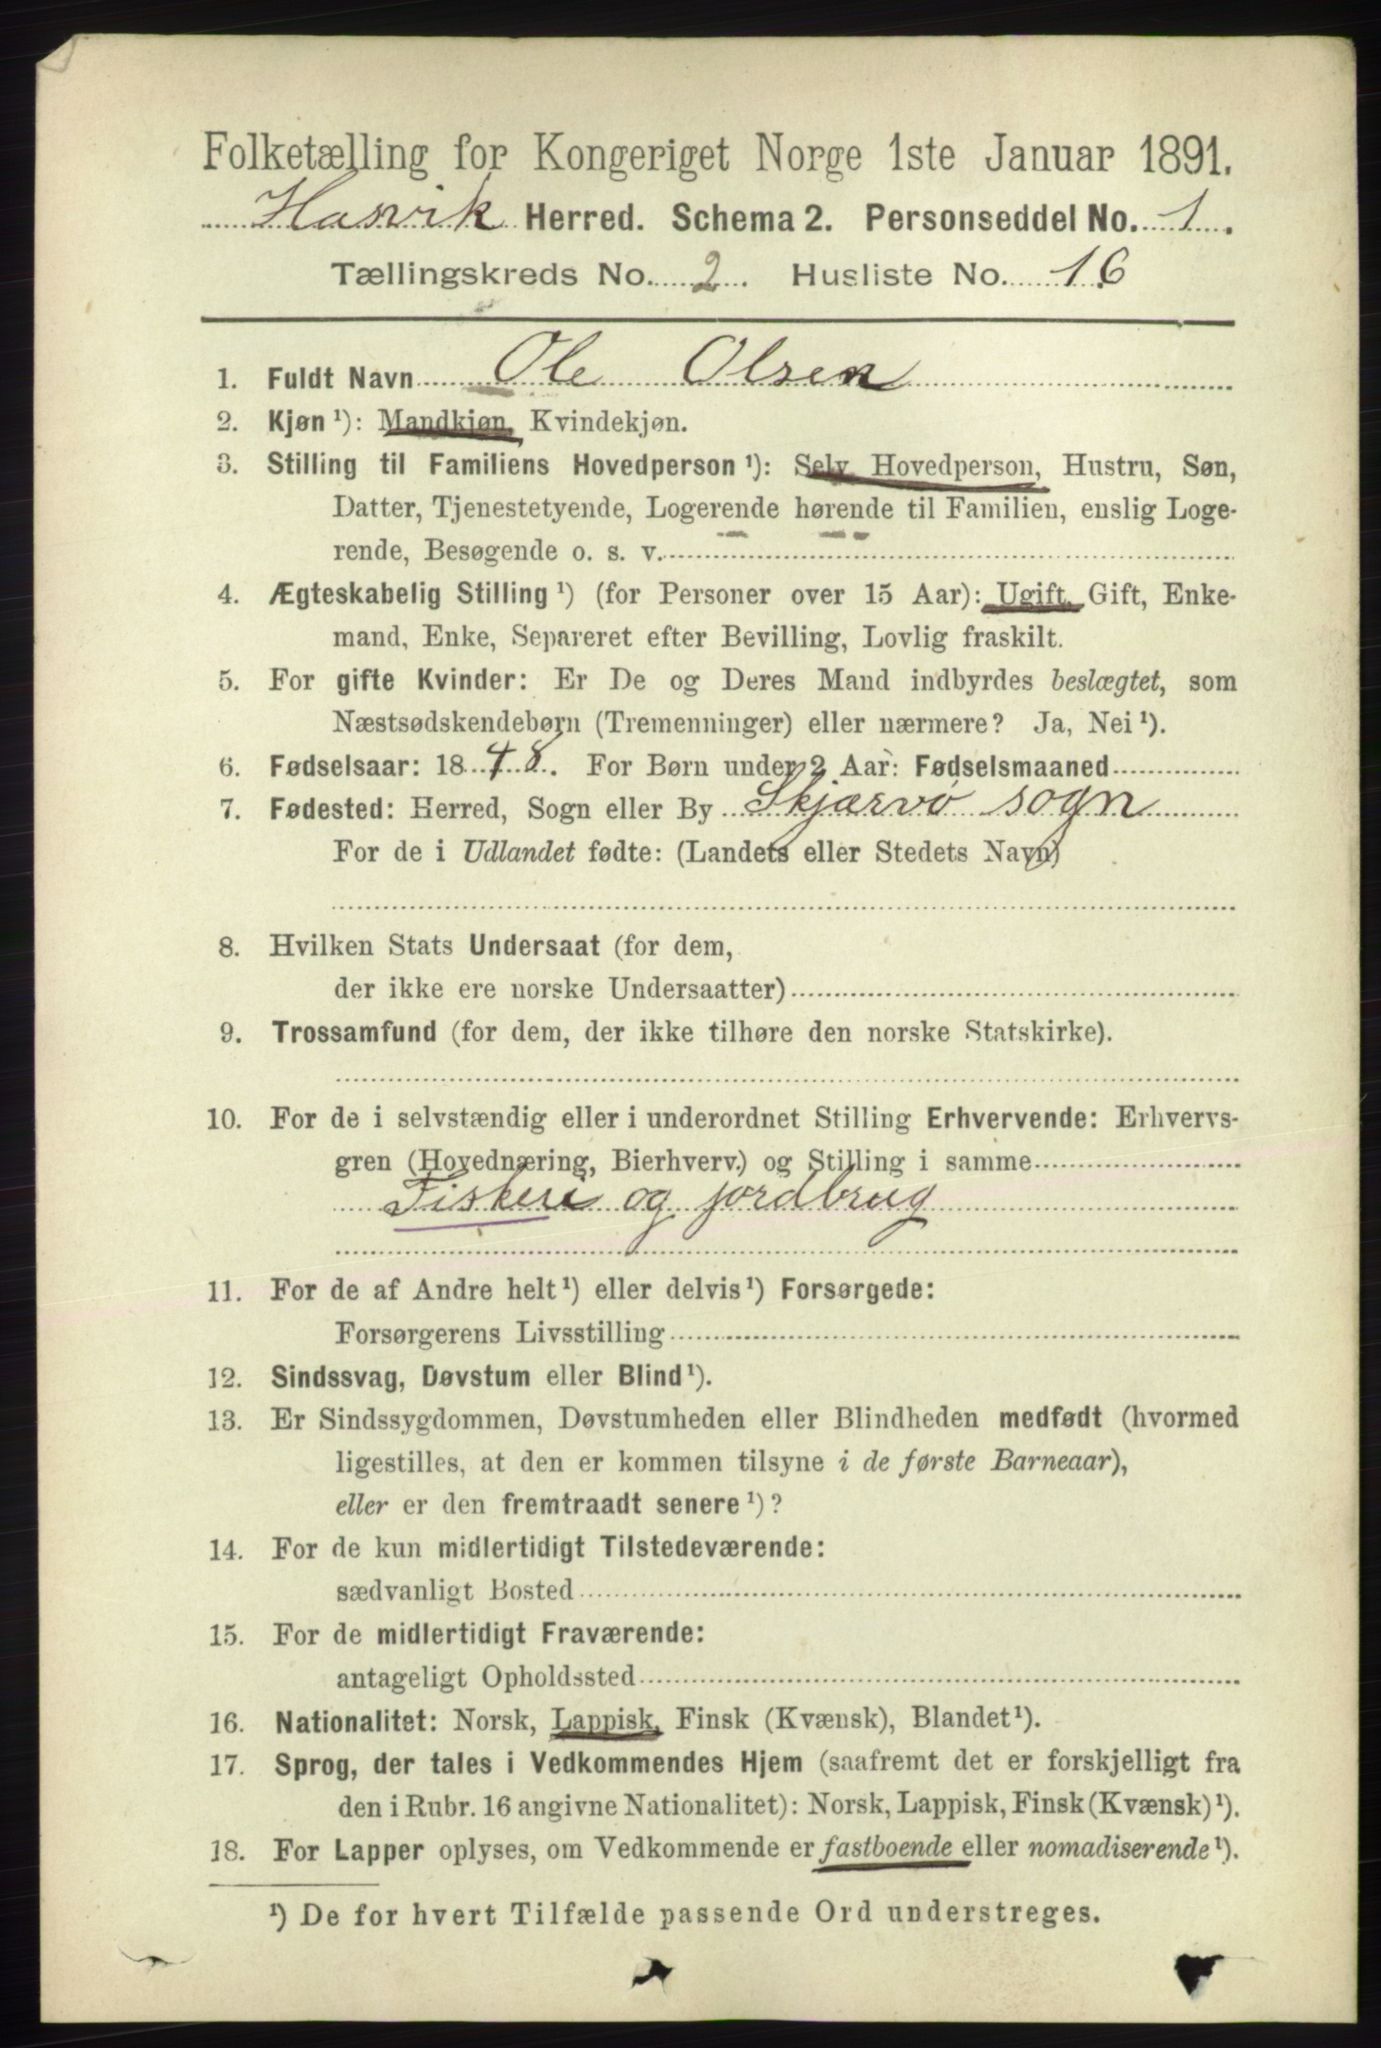 Folketælling for Kongeriget Norge 1ste Januar 1891.
Hasvik Herred. Schema 2. Personseddel No. 1.
Tællingskreds No. 2. Husliste No. 16
1. Fuldt Navn Ole Olsen
2. Kjøn ¹): Mandkjøn, Kvindekjøn.
3. Stilling til Familiens Hovedperson ¹): Selv Hovedperson, Hustru, Søn,
Datter, Tjenestetyende, Logerende hørende til Familien, enslig Loge-
rende, Besøgende o. s. v.
4. Ægteskabelig Stilling ¹) (for Personer over 15 Aar): Ugift, Gift, Enke-
mand, Enke, Separeret efter Bevilling, Lovlig fraskilt.
5. For gifte Kvinder: Er De og Deres Mand indbyrdes beslægtet, som
Næstsødskendebørn (Tremenninger) eller nærmere? Ja, Nei ¹).
6. Fødselsaar: 1848. For Børn under 2 Aar: Fødselsmaaned
7. Fødested: Herred, Sogn eller By Skjærvø sogn
For de i Udlandet fødte: (Landets eller Stedets Navn)
8. Hvilken Stats Undersaat (for dem,
der ikke ere norske Undersaatter)
9. Trossamfund (for dem, der ikke tilhøre den norske Statskirke).
10. For de i selvstændig eller i underordnet Stilling Erhvervende: Erhvervs-
gren (Hovednæring, Bierhverv.) og Stilling i samme
Fiskeri og jordbrug
11. For de af Andre helt ¹) eller delvis ¹) Forsørgede:
Forsørgerens Livsstilling
12. Sindssvag, Døvstum eller Blind ¹).
13. Er Sindssygdommen, Døvstumheden eller Blindheden medfødt (hvormed
ligestilles, at den er kommen tilsyne i de første Barneaar),
eller er den fremtraadt senere ¹)?
14. For de kun midlertidigt Tilstedeværende:
sædvanligt Bosted
15. For de midlertidigt Fraværende:
antageligt Opholdssted
16. Nationalitet: Norsk, Lappisk, Finsk (Kvænsk), Blandet ¹).
17. Sprog, der tales i Vedkommendes Hjem (saafremt det er forskjelligt fra
den i Rubr. 16 angivne Nationalitet): Norsk, Lappisk, Finsk (Kvænsk) ¹).
18. For Lapper oplyses, om Vedkommende er fastboende eller nomadiserende ¹).
¹) De for hvert Tilfælde passende Ord understreges.